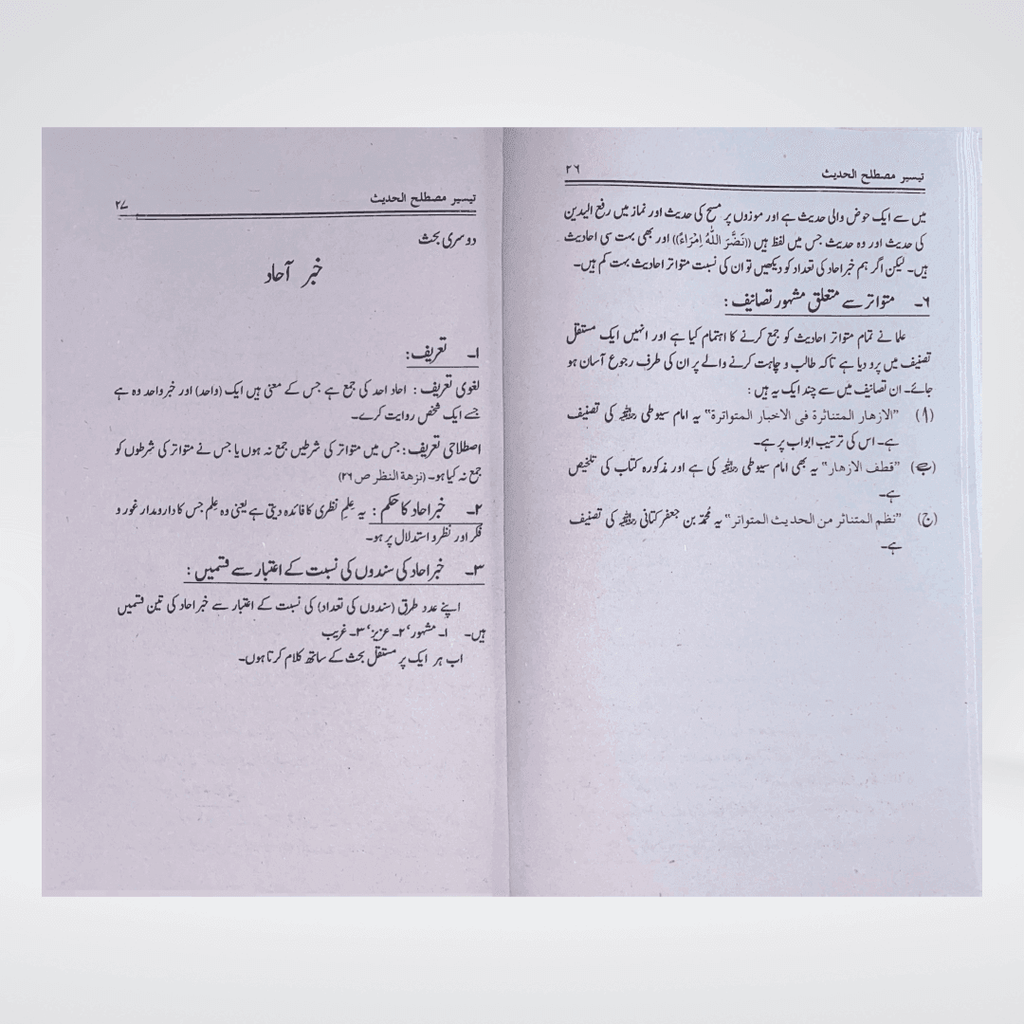 تیسیر مصطلح الحدیث ۲۶
میں سے ایک حوض والی حدیث ہے اور موزوں پر مسح کی حدیث اور نماز میں رفع الیدین
کی حدیث اور وہ حدیث جس میں لفظ ہیں ((نَضَّرَ اللّٰهُ اِمْرَاءً)) اور بھی بہت سی احادیث
ہیں۔ لیکن اگر ہم خبر احاد کی تعداد کو دیکھیں تو ان کی نسبت متواتر احادیث بہت کم ہیں۔
۶۔ متواتر سے متعلق مشہور تصانیف :
علما نے تمام متواتر احادیث کو جمع کرنے کا اہتمام کیا ہے اور انہیں ایک مستقل
تصنیف میں پرو دیا ہے تاکہ طالب و چاہت کرنے والے پر ان کی طرف رجوع آسان ہو
جائے۔ ان تصانیف میں سے چند ایک یہ ہیں :
(ا) "الازهار المتناثرة فى الاخبار المتواترة" یہ امام سیوطی رحمہ اللہ کی تصنیف
ہے۔ اس کی ترتیب ابواب پر ہے۔
(ب) "قطف الازهار" یہ بھی امام سیوطی رحمہ اللہ کی ہے اور مذکورہ کتاب کی تلخیص
ہے۔
(ج) "نظم المتناثر من الحديث المتواتر" یہ محمد بن جعفر کتانی رحمہ اللہ کی تصنیف
ہے۔
تیسیر مصطلح الحدیث ۲۷
دوسری بحث
خبر آحاد
۱۔ تعریف :
لغوی تعریف : احاد احد کی جمع ہے جس کے معنی ہیں ایک (واحد) اور خبر واحد وہ ہے
جسے ایک شخص روایت کرے۔
اصطلاحی تعریف : جس میں متواتر کی شرطیں جمع نہ ہوں یا جس نے متواتر کی شرطوں کو
جمع نہ کیا ہو۔ (نزهة النظر ص ۲۶)
۲۔ خبر احاد کا حکم : یہ علمِ نظری کا فائدہ دیتی ہے یعنی وہ علم جس کا دارومدار غور و
فکر اور نظر و استدلال پر ہو۔
۳۔ خبر احاد کی سندوں کی نسبت کے اعتبار سے قسمیں :
اپنے عدد طرق (سندوں کی تعداد) کی نسبت کے اعتبار سے خبر احاد کی تین قسمیں
ہیں۔ ۱۔ مشہور' ۲۔ عزیز' ۳۔ غریب
اب ہر ایک پر مستقل بحث کے ساتھ کلام کرتا ہوں۔